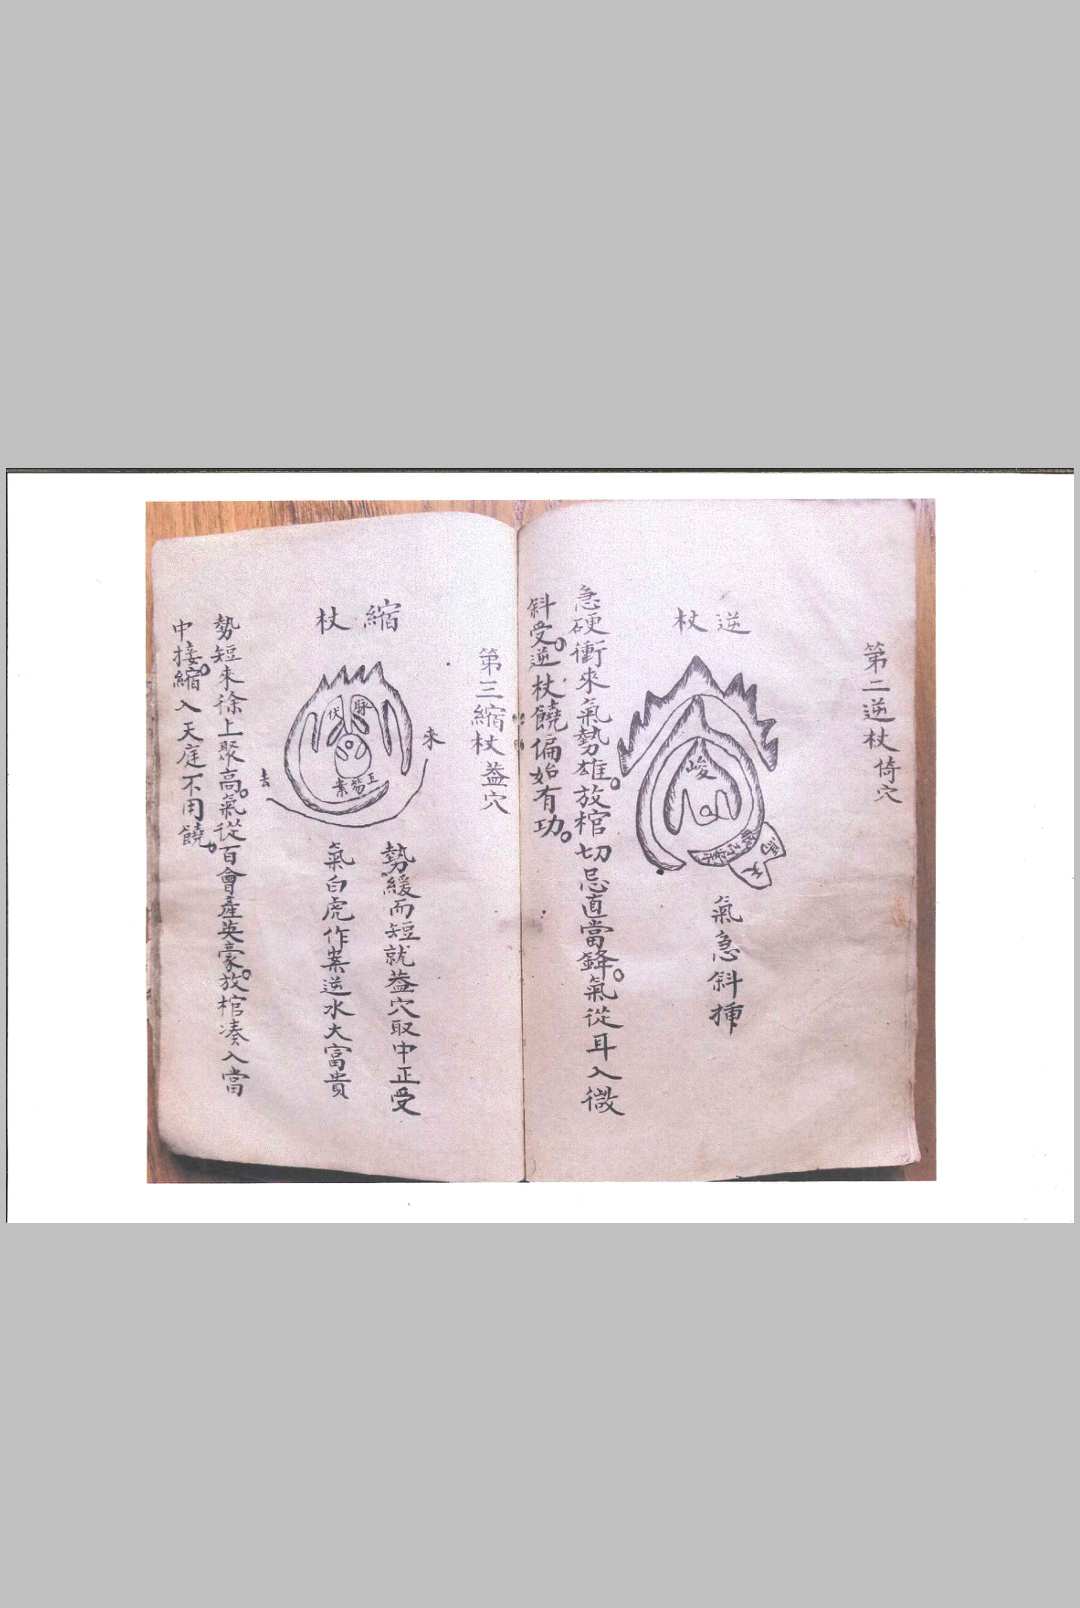 第二逆杖倚穴
逆杖
峻
氣急斜揷
急硬衝來氣勢雄。放棺切忌直當鋒。氣從耳入微
斜受。逆杖饒偏始有功。
第三縮杖葢穴
縮杖
脉
伏
來
去
勢緩而短就葢穴取中正受
氣白虎作案逆水大富贵
勢短來徐上聚高。氣從百會產英豪。放棺凑入當
中接。縮入天庭不用饒。